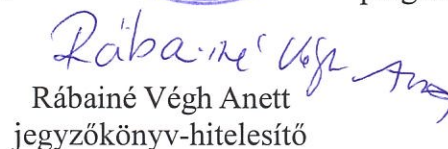 Rábainé Végh Anett
Rábainé Végh Anett
jegyzőkönyv-hitelesítő